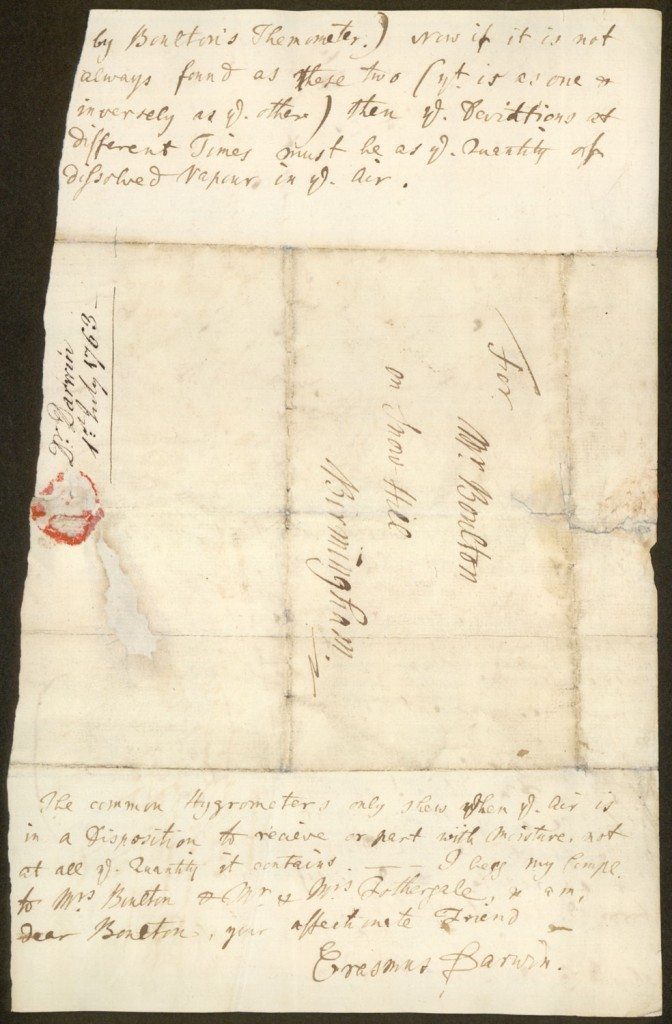 by Boulton's Themometer.) Now if it is not
always found as these two (yt. is as one &
inversely as ye. other) then ye. Devidtions at
different Times must be as ye. Quantity of
dissolved Vapour in ye. Air.
Dr. Darwin
1st July 1763
For
Mr Boulton
on Snow Hill
Birmingham.
The common Hygrometers only shew when ye. Air is
in a Disposition to recieve or part with Moisture, not
at all ye. Quantity it contains. — I beg my Compl.
to Mrs Boulton & Mr & Mrs Fothergale, & am,
Dear Boulton, your affectionate Friend —
Erasmus Darwin.